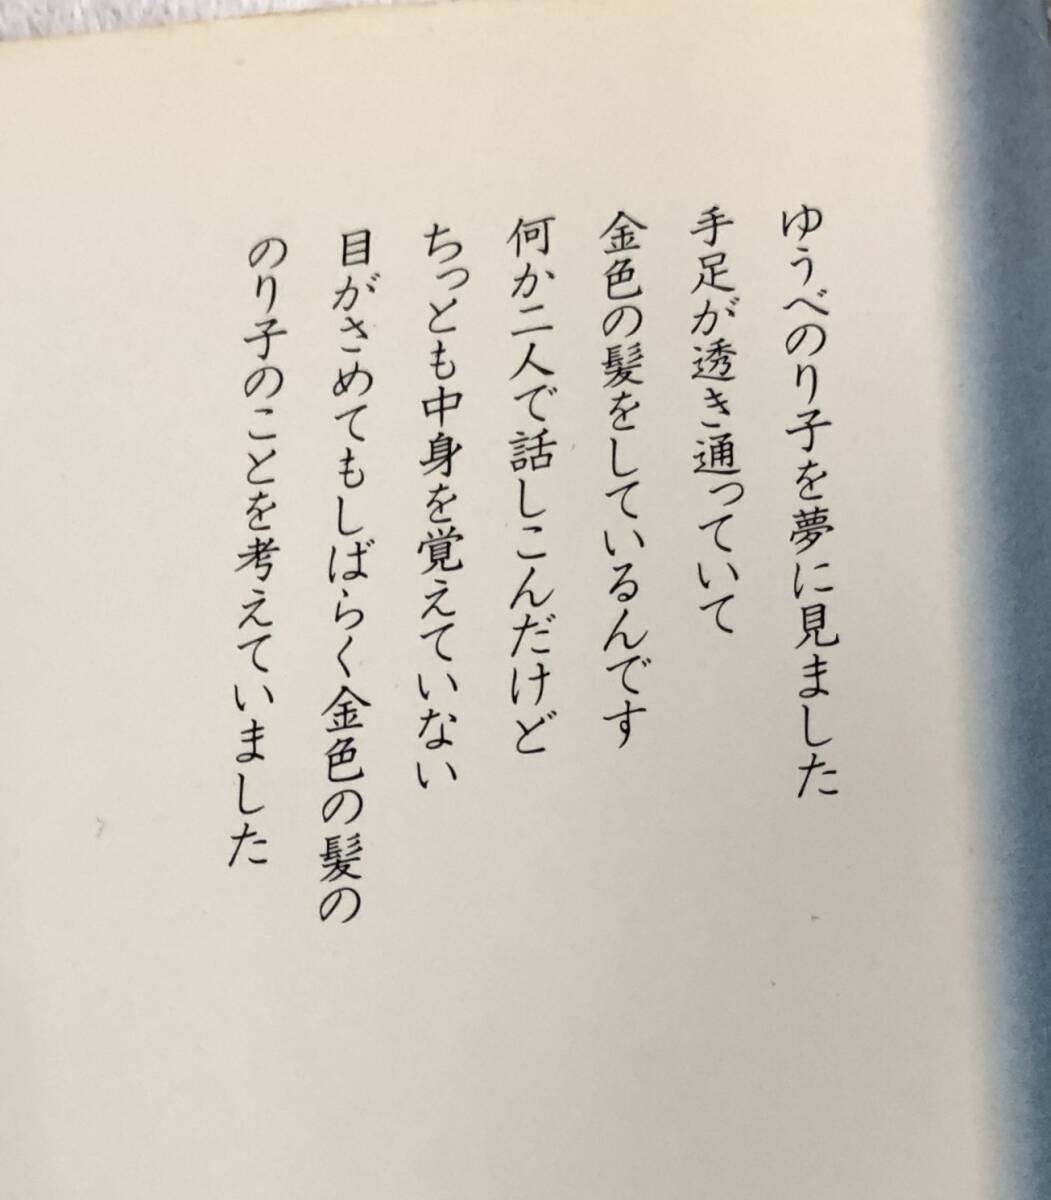 ゆうべのり子を夢に見ました
手足が透き通っていて
金色の髪をしているんです
何か二人で話しこんだけど
ちっとも中身を覚えていない
目がさめてもしばらく金色の髪の
のり子のことを考えていました